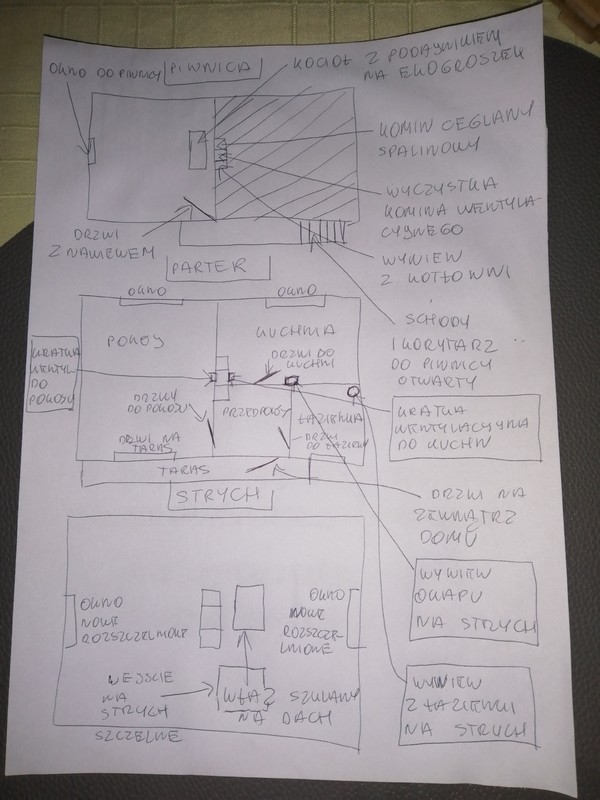 OKNO DO PIWNICY
PIWNICA
KOCIOŁ Z PODAJNIKIEM
NA EKOGROSZEK
KOMIN CEGLANY
SPALINOWY
WYCZYSTKA
KOMINA WENTYLA-
CYJNEGO
WYWIEW
Z KOTŁOWNI
DRZWI
Z NAWIEWEM
SCHODY
I KORYTARZ
DO PIWNICY
OTWARTY
PARTER
OKNO
OKNO
POKÓJ
KUCHNIA
KRATKA
WENTYL
DO
POKOJU
DRZWI DO
KUCHNI
DRZWI
DO POKOJU
PRZEDPOKÓJ
ŁAZIENKA
DRZWI
DO ŁAZIENKI
DRZWI NA
TARAS
TARAS
KRATKA
WENTYLACYJNA
DO KUCHNI
DRZWI NA
ZEWNĄTRZ
DOMU
STRYCH
OKNO
NOWE
ROZSZCZELNIONE
OKNO
NOWE
ROZSZCZE-
LNIONE
WEJŚCIE
NA
STRYCH
SZCZELNE
WŁAZ SZKLANY
NA DACH
WYWIEW
OKAPU
NA STRYCH
WYWIEW
Z ŁAZIENKI
NA STRYCH